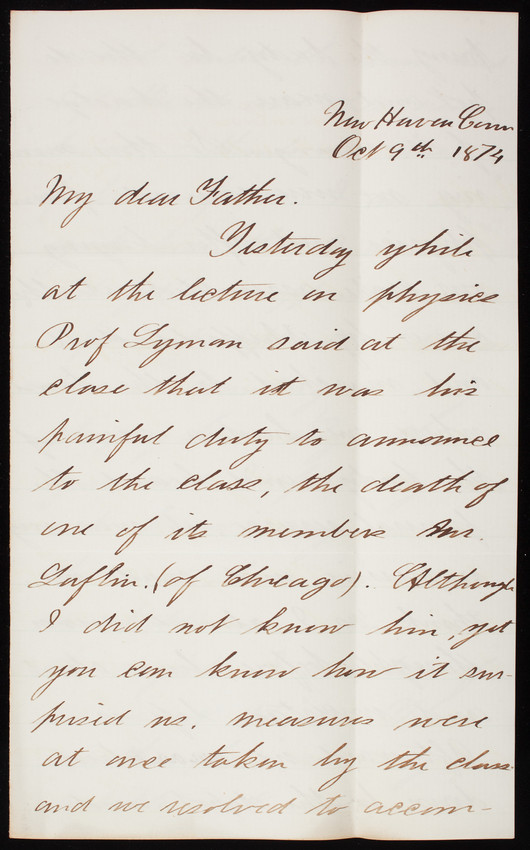 New Haven Conn
Oct 9th 1874
My dear Father.
Yesterday while
at the lecture on physics
Prof Lyman said at the
close that it was his
painful duty to announce
to the class, the death of
one of its members Mr.
Laflin. (of Chicago). Although
I did not know him, yet
you can know how it sur-
prised us. measures were
at once taken by the class
and we resolved to accom-